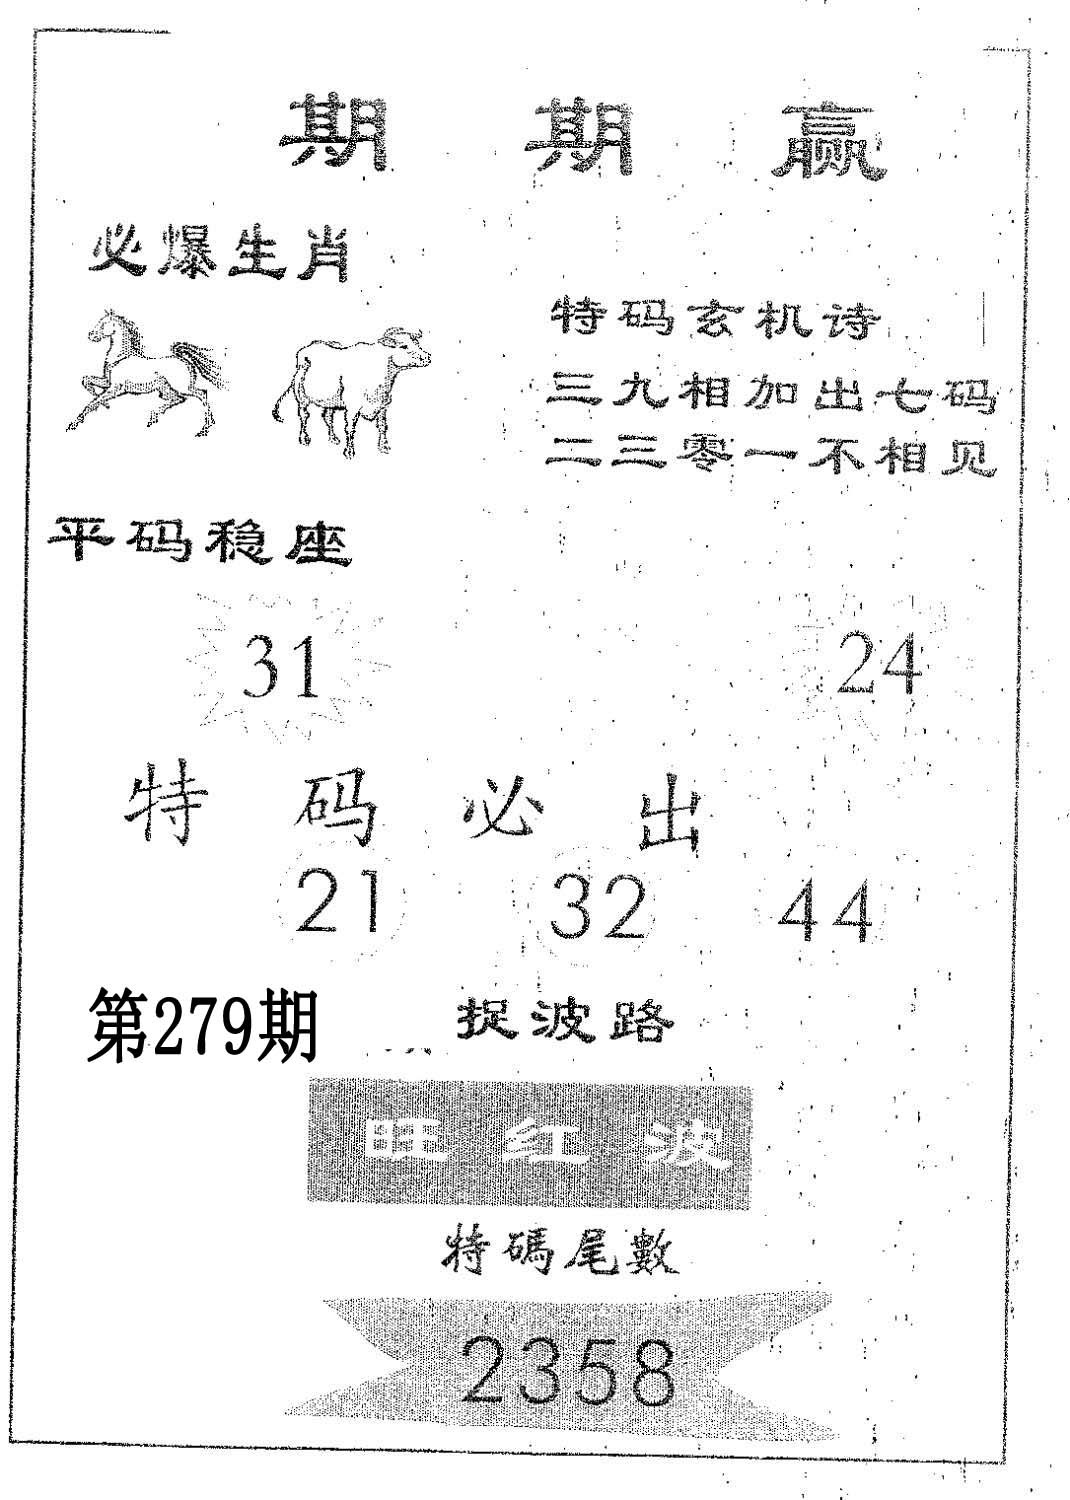 期期赢
必爆生肖
特码玄机诗
三九相加出七码
二三零一不相见
平码稳座
31
24
特码必出
21
32
44
第279期
捉波路
旺红波
特碼尾數
2358